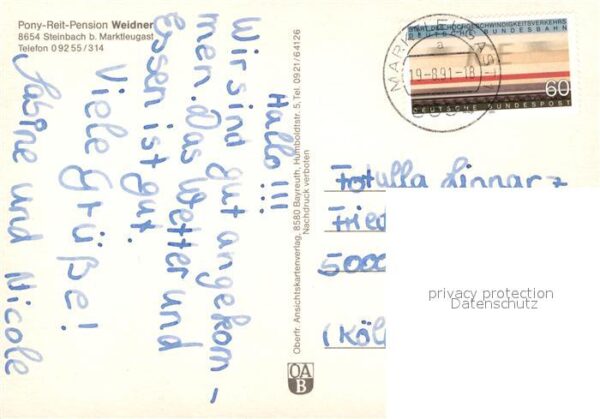 Pony-Reit-Pension Weidner
8654 Steinbach b. Marktleugast
Telefon 0 92 55 / 314
Hallo !!!
Wir sind gut angekom-
men. Das Wetter und
Essen ist gut.
Viele Grüße!
Sabine und Nicole
Oberfr. Ansichtskartenverlag, 8580 Bayreuth, Humboldtstr. 5, Tel. 0921/64126
Nachdruck verboten
OA
B
START DES HOCHGESCHWINDIGKEITSVERKEHRS
DEUTSCHE BUNDESBAHN
60
DEUTSCHE BUNDESPOST
MARKTLEUGAST
a
19.-8.91.-18
Linnarz
Fried
5000
(Köl
privacy protection
Datenschutz